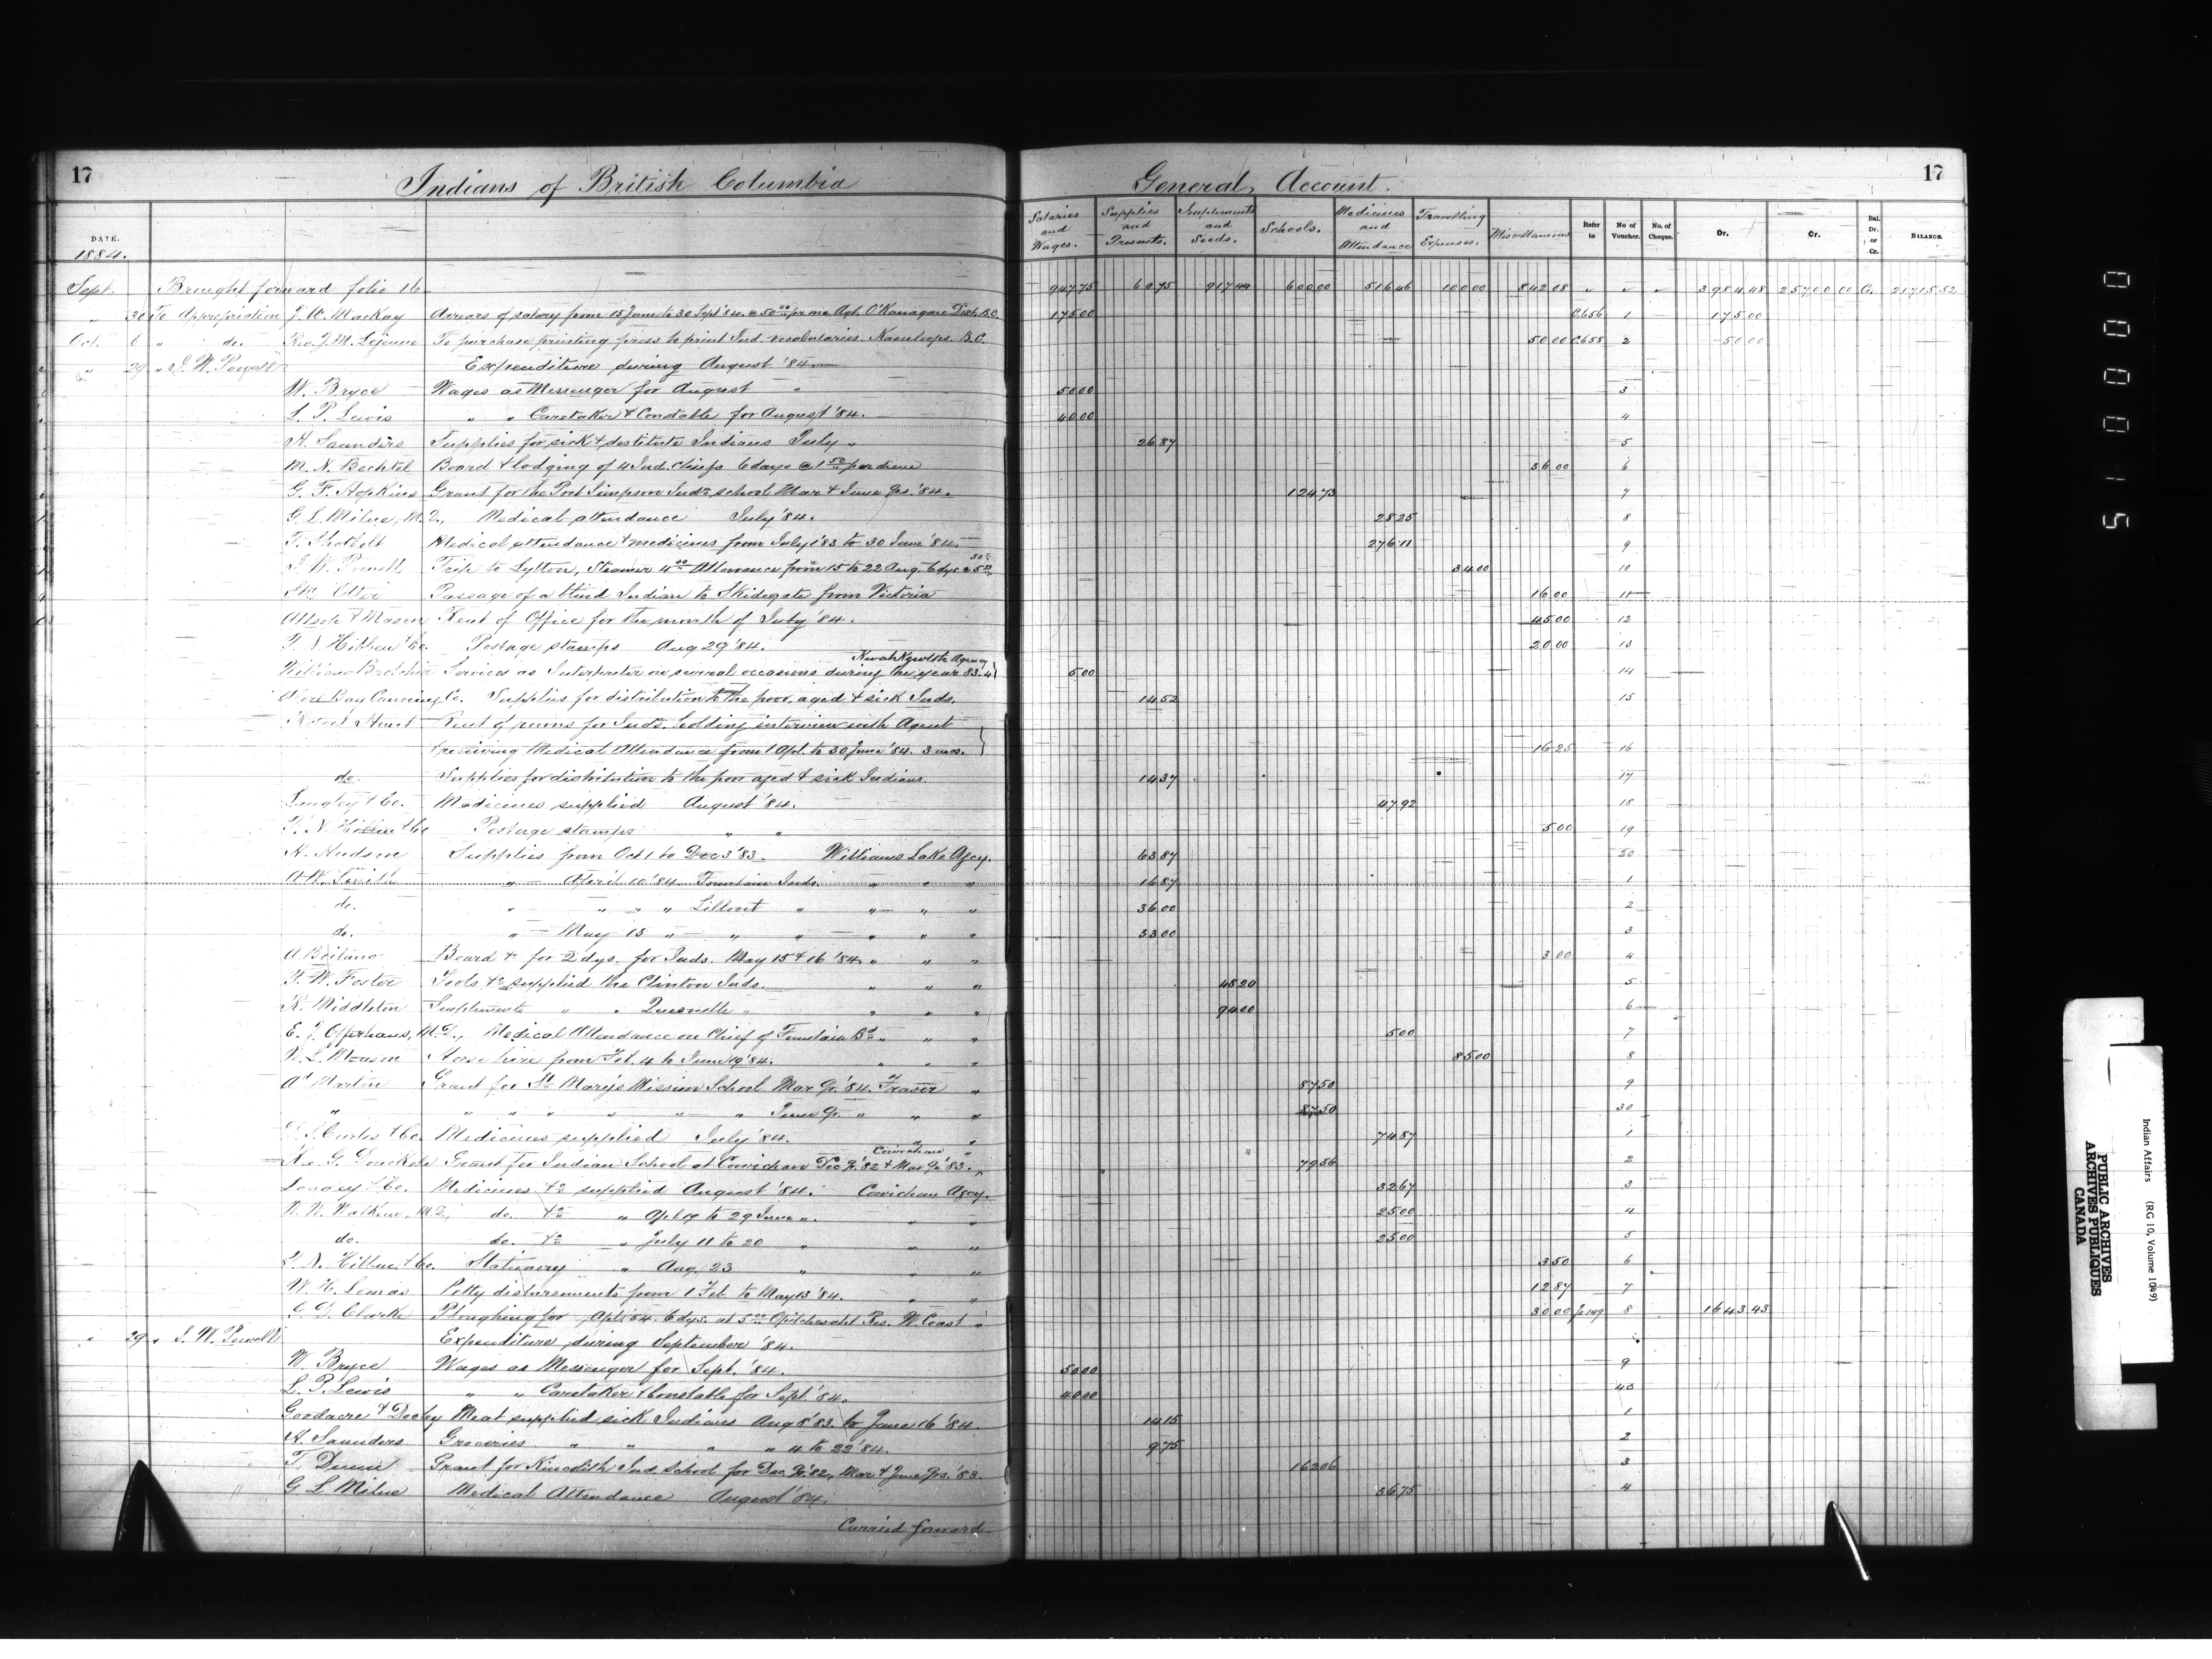 17 Indians of British Columbia General Account. 17
DATE. 1884. Salaries and Wages. Supplies and Presents. Implements and Seeds. Schools. Medicines and Attendance Travelling Expenses. Miscellaneous Refer to No of Voucher. No. of Cheque. Dr. Cr. Bal. Dr. or Cr. BALANCE.
Sept. Brought forward folio 16 947.75 60.75 917.44 600.00 516.46 100.00 842.08 " " " 3984.48 25700.00 Cr. 21715.52
" 30 To Appropriation J. W. Mackay Arrears of salary from 15 June to 30 Sept '84 @ 50.00 pr mo Agt. O'Kanagan Dist. B.C. 175.00 C.656 1 175.00
Oct. 6 " do. Rev. J. M. Lejeune To purchase printing press to print Ind. vocabularies. Kamloops. B.C. 50.00 C.658 2 50.00
" 29 " I. W. Powell Expenditure during August '84
W. Bryce Wages as Messenger for August " 50.00 3
L. P. Lewis " " Caretaker & Constable for August '84. 40.00 4
H. Saunders Supplies for sick & destitute Indians July " 26.87 5
M. N. Bechtel Board & lodging of 4 Ind. Chiefs 6 days @ 1.50 per diem 36.00 6
G. F. Hopkins Grant for the Port Simpson Indn school Mar & June Qrs. '84. 124.73 7
G. L. Milne, M.D., Medical attendance July '84. 28.25 8
T. Shotbolt Medical attendance & medicines from July 1 '83 to 30 June '84. 276.11 9
I. W. Powell Trip to Lytton, Steamer 4.00 Allowance from 15 to 22 Aug. 6 dys @ 5.00 30.00 34.00 10
Str. Otter Passage of a blind Indian to Skidegate from Victoria 16.00 11
Allsop & Mason Rent of Office for the month of July '84. 45.00 12
T. N. Hibben & Co. Postage stamps Aug 29 '84. 20.00 13
Kwahkewlth Agency
William Brotchie Services as Interpreter on several occasions during the year 83-4 5.00 14
Alert Bay Canning Co. Supplies for distribution to the poor, aged & sick Inds. 14.52 15
Robert Hunt Rent of rooms for Inds. holding interview with Agent
& receiving Medical Attendance from 1 Apl. to 30 June '84. 3 mos. 16.25 16
do. Supplies for distribution to the poor aged & sick Indians. 14.37 17
Langley & Co. Medicines supplied August '84. 47.92 18
T. N. Hibben & Co Postage stamps " " 5.00 19
R. Hudson Supplies from Oct 1 to Dec 3 '83. Williams Lake Agcy. 63.87 20
A. W. Smith " April 10 '84 Fountain Inds. " " " 16.87 1
do. " " " " Lillooet " " " " 36.00 2
do. " May 13 " " " " " " 33.00 3
A Beitano Board &c for 2 dys. for Inds. May 15 & 16 '84 " " " 3.00 4
F. W. Foster Tools &c supplied the Clinton Inds. " " " 48.20 5
R. Middleton Implements " " Quesnelle " " " " 94.00 6
E. J. Offerhaus, M.D., Medical Attendance on Chief of Fountain Bd " " " 5.00 7
N. L. Mason Horse hire from Feb. 4 to June 19 '84. " " " 85.00 8
Ad Martin Grant for St Mary's Mission School Mar Qr. '84. Fraser " 87.50 9
" " " " " " " June Qr. " " " 87.50 30
Curtis & Co. Medicines supplied July '84. " " 74.87 1
Cowichan "
Rev. G. Donckele Grant for Indian School at Cowichan Dec Qr. '82 & Mar Qr. '83. " 79.56 2
Langley & Co. Medicines &c supplied August '84. Cowichan Agcy. 32.67 3
W. W. Walkem, M.D., do. &c " Apl 19 to 29 June ". " " 25.00 4
do. do. &c " July 11 to 20 " " " 25.00 5
T. N. Hibben & Co. Stationery " Aug 23 " " " 3.50 6
W. H. Lomas Petty disbursements from 1 Feb to May 13 '84. " " 12.87 7
C. G. Clarke Ploughing for Apl. '84. 6 dys. at 5.00 Opitchesaht Res. W. Coast " 30.00 fo 149 8 1643.43
" 29 " I. W. Powell Expenditure during September '84.
W. Bryce Wages as Messenger for Sept. '84. 50.00 9
L. P. Lewis " " Caretaker & Constable for Sept. '84. 40.00 40
Goodacre & Dooley Meat supplied sick Indians Aug 8 '83 to June 16 '84. 14.15 1
H. Saunders Groceries " " " " 4 to 22 '84. 9.75 2
T. Dunn Grant for Kincolith Ind. School for Dec. Qr. '82, Mar & June Qrs. '83. 162.06 3
G L Milne Medical Attendance August '84. 36.75 4
Carried forward
000015
Indian Affairs (RG 10, Volume 1049)
PUBLIC ARCHIVES
ARCHIVES PUBLIQUES
CANADA